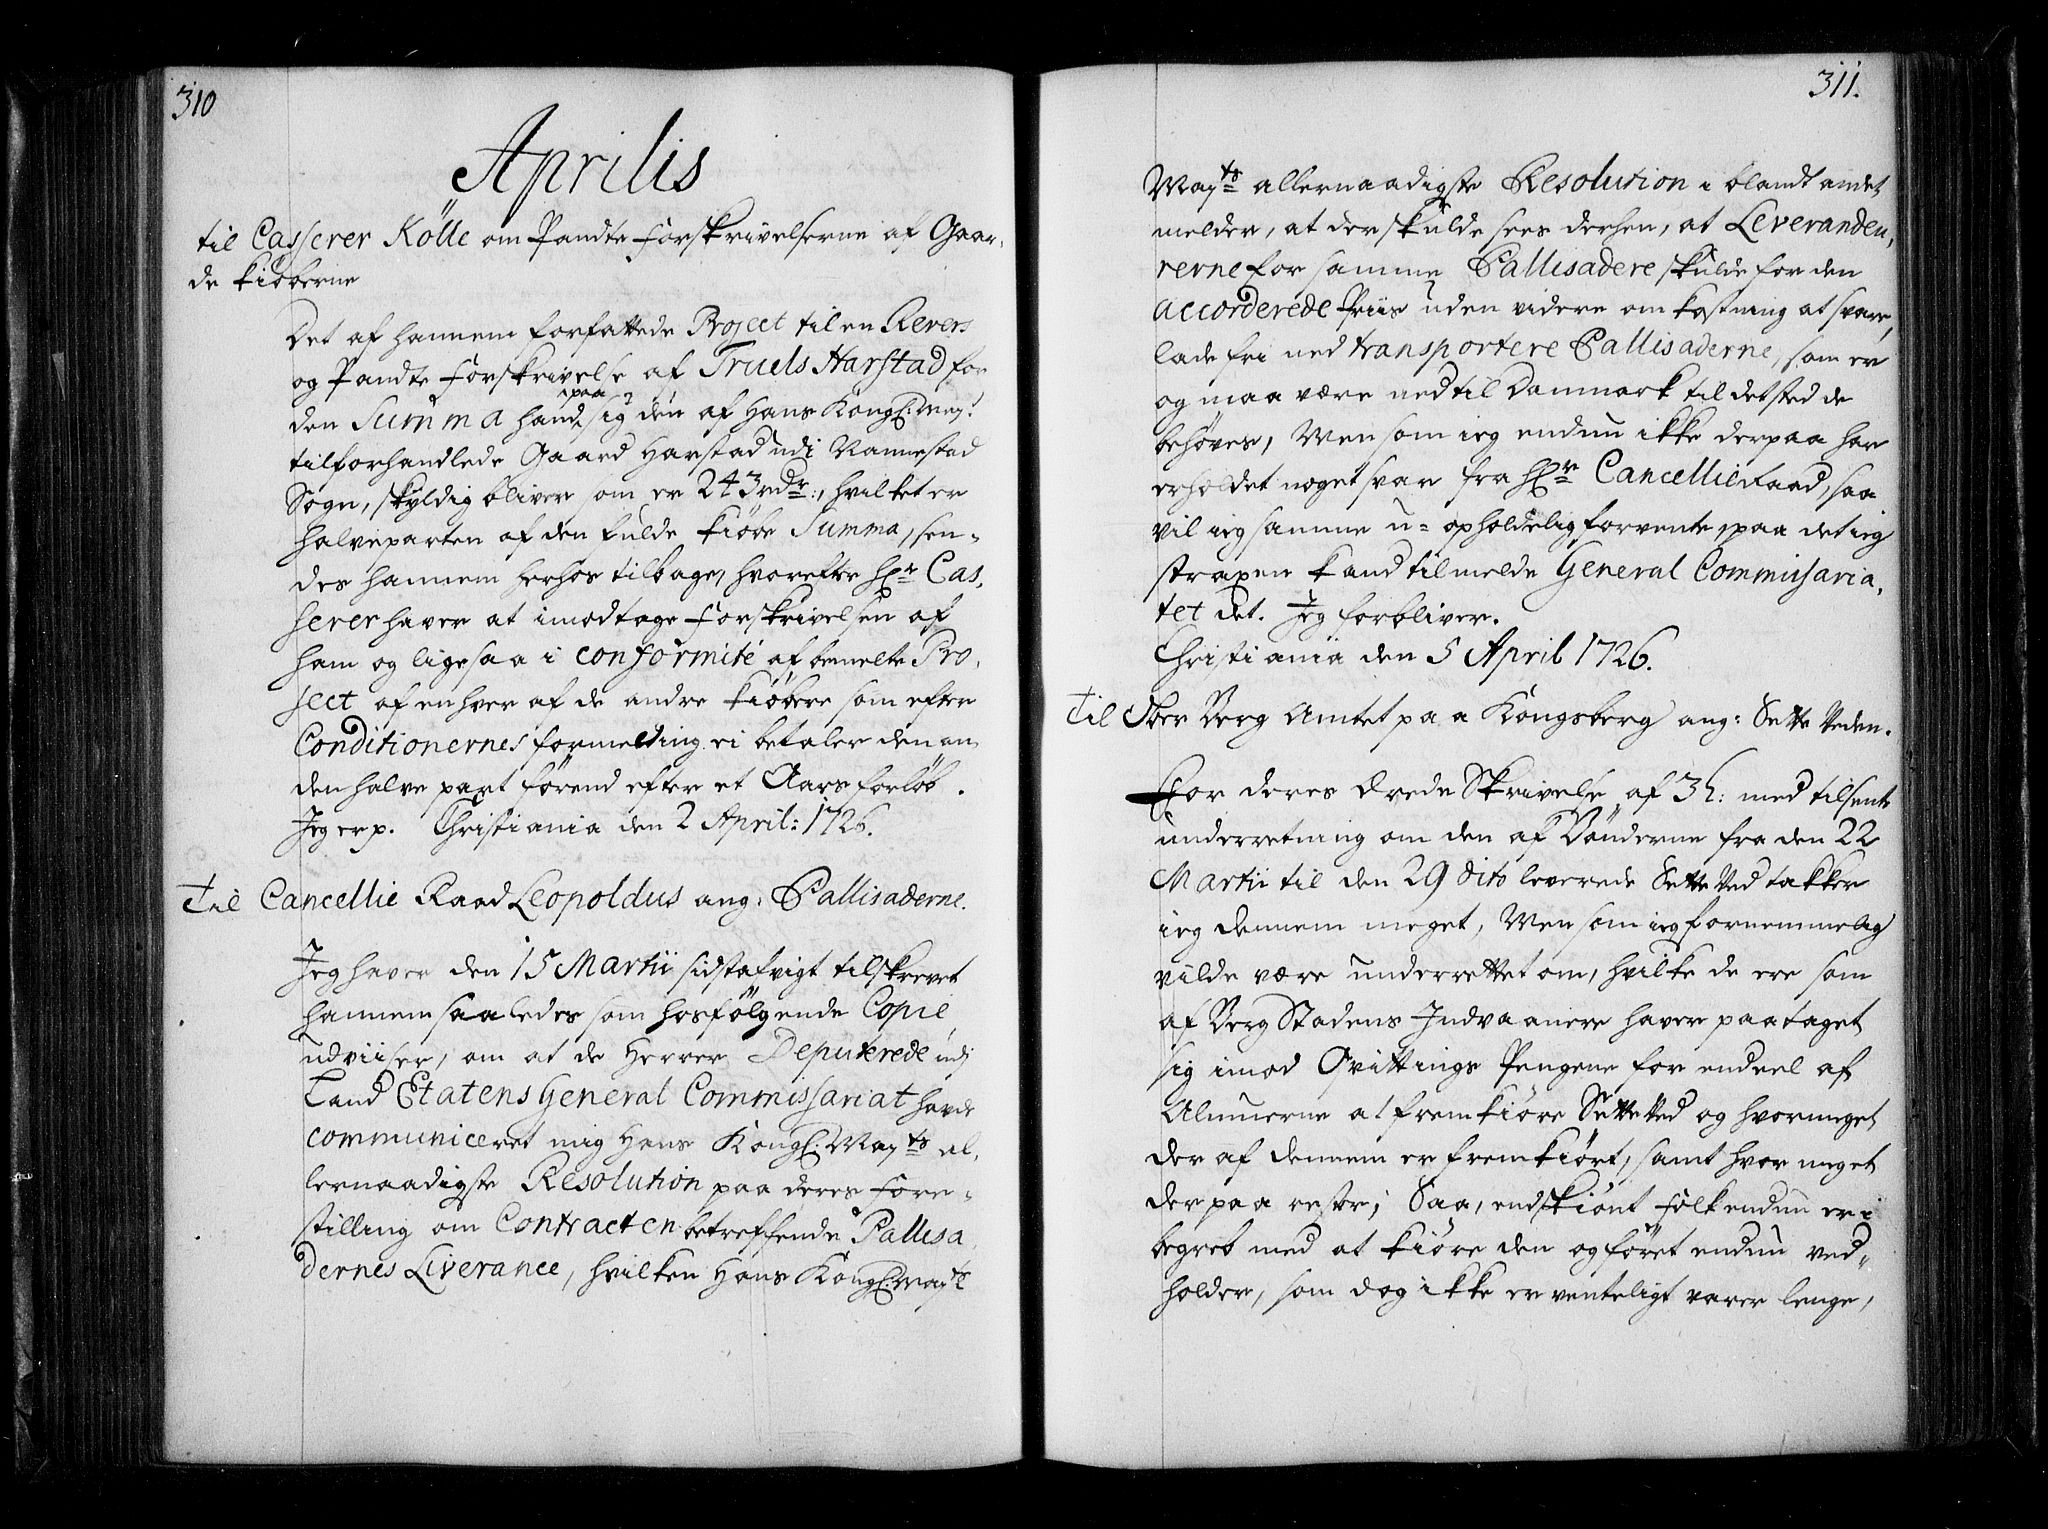 310
Aprilis
til Casserer Kölle om Pandte forskrivelserne af Gaar,
de kiöberne
Det af hannem forfattede Project til en Revers
og Pandte forskrivelse af Truels Harstad for
den Summa hand paa sig den af Hans Kongl: May:
tilforhandlede Gaard Harstad udi Nannestad
Sogn, skyldig bliver som er 243 rdr:, hvilket er
halveparten af den fulde kiöbe Summa, sen-
des hannem herhos tilbage, hvorefter Hr Cas,
serer haver at imodtage forskrivelsen af
ham og ligesaa i conformité af bemelte Pro,
ject af enhver af de andre kiöbere som efter
Conditionernes formelding ei betaler den an,
den halve part förend efter et Aars forlöb.
Jeg er p. Christiania den 2 April: 1726.
Til Cancellie Raad Leopoldus ang: Pallisaderne.
Jeg haver den 15 Martii sidstafvigt tilskrevet
hannem saaledes som hosfölgende Copie
udviiser, om at de Herrer Deputerede udj
Land Etatens General Commissariat havde
communiceret mig Hans Kongl: Mayts al,
lernaadigste Resolution paa deres fore-
stilling om Contracten betreffende Pallisa,
dernes Liverance, hvilken Hans Kongl: Mayts
311.
Mayts allernaadigste Resolution i blandt andet
melder, at der skulde sees derhen, at Leverandeu,
rerne for samme Pallisadere skulde for den
accorderede Priis uden videre omkostning at svare,
lade fri ned transportere Pallisaderne, som er
og maa være ned til Danmark til det sted de
behöves, Men som ieg endnu ikke derpaa har
erholdet noget svar fra Hr Cancellie Raad, saa
vil ieg samme u-opholdelig forvente, paa det ieg
straxen kand tilmelde General Commissaria,
tet det. Jeg forbliver.
Christiania den 5 April 1726.
Til Ober Berg Amtet paa Kongsberg ang: Sette Veden.
For deres ærede Skrivelse af 3h: med tilsente
underretning om den af Bönderne fra den 22
Martii til den 29 dito leverede Sette Ved takker
ieg dennem meget, Men som ieg fornemmelig
vilde være underrettet om, hvilke de ere som
af Berg Stadens Indvaanere haver paataget
sig imod Qvittings Pengene for endeel af
Almuerne at fremkiöre Sette Ved og hvormeget
der af dennem er fremkiört, samt hvor meget
der paa rester; Saa, endskiönt folk endnu er i
begreb med at kiöre den og föret endnu ved-
holder, som dog ikke er venteligt varer lenge,